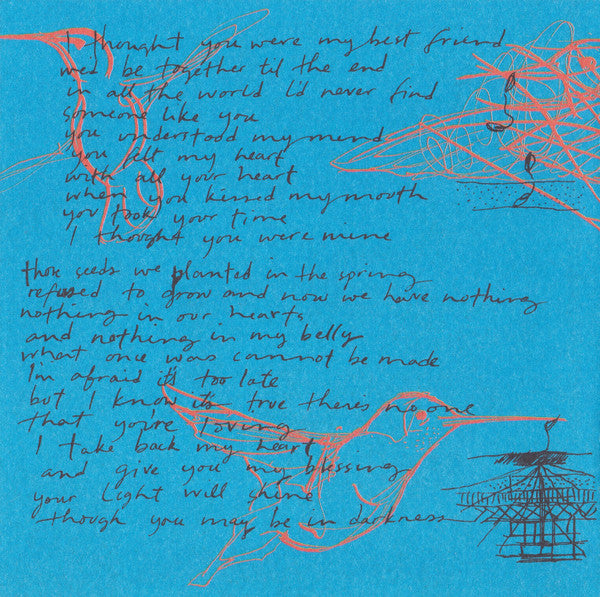 I thought you were my best friend
we'd be together til the end
in all the world I'd never find
someone like you
you understood my mind
you felt my heart
with all your heart
when you kissed my mouth
you took your time
I thought you were mine
those seeds we planted in the spring
refused to grow and now we have nothing
nothing in our hearts
and nothing in my belly
what once was cannot be made
I'm afraid it's too late
but I know it's true theres no one
that you're loving
I take back my heart
and give you my blessing
your light will shine
though you may be in darkness